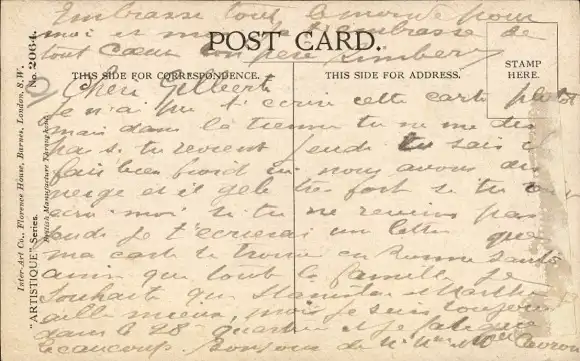 Embrasse tout le monde pour
moi et je t'embrasse de
tout cœur ton père
POST CARD.
THIS SIDE FOR CORRESPONDENCE.
THIS SIDE FOR ADDRESS.
STAMP
HERE.
Inter-Art Co., Florence House, Barnes, London, S.W.
"ARTISTIQUE" Series.
No. 2064.
British Manufacture Throughout
Chère Gilberte
Je n'ai pu t'écrire cette carte plutot
mais dans la tienne tu ne me dis
pas si tu revient jeudi tu sais il
fais bien froid ici nous avons du
neige et il gele tres fort si tu
moi si tu ne reviens pas
jeudi je t'écrierai un lettre que
ma carte te trouve en bonne santé
ainsi que toute la famille je
souhaite que et
aille mieux, moi je suis toujours
dans le 28 quartier et je
beaucoup. Bonjour de